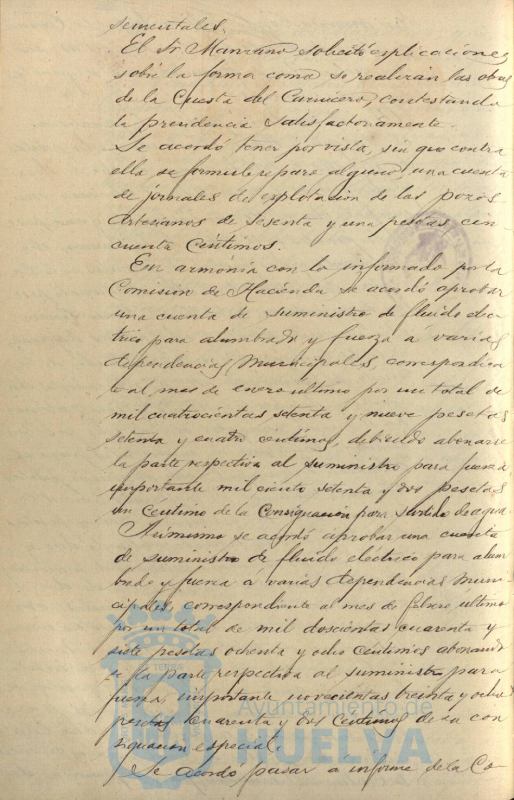 sementales.
El Sr Manzano solicitó esplicaciones
sobre la forma como se realizan las obras
de la Cuesta del Carnicero, contestando
la presidencia satisfactoriamente.
Se acordó tener por vista, sin que contra
ella se formule reparo alguno, una cuenta
de jornales de explotación de los pozos
Artesianos de sesenta y una pesetas, cin
cuenta Céntimos.
En armonia con lo informado por la
Comisión de Hacienda se acordó aprobar
una cuenta de suministro de fluido eléc
trico para alumbrado y fuerza á varias
dependencias Municipales, correspondien
te al mes de enero ultimo por un total de
mil cuatrocientas setenta y nueve pesetas
setenta y cuatro céntimos, debiendo abonarse
la parte respectiva al suministro para fuerza
importante mil ciento setenta y dos pesetas
un Centimo de la Consignación para surtido de agua.
Asimismo se acordó aprobar una cuenta
de suministro de fluido eléctrico para alum
brado y fuerza á varias dependencias Muni
cipales, correspondiente al mes de febrero ultimo
por un total de mil doscientas cuarenta y
siete pesetas ochenta y ocho Centimos abonando
se la parte respectiva al suministro para
fuerza, importante novecientas treinta y ocho
pesetas cuarenta y dos Centimos de su con
signación especial.
Se acordó pasar á informe de la Co-
Ayuntamiento de
HUELVA